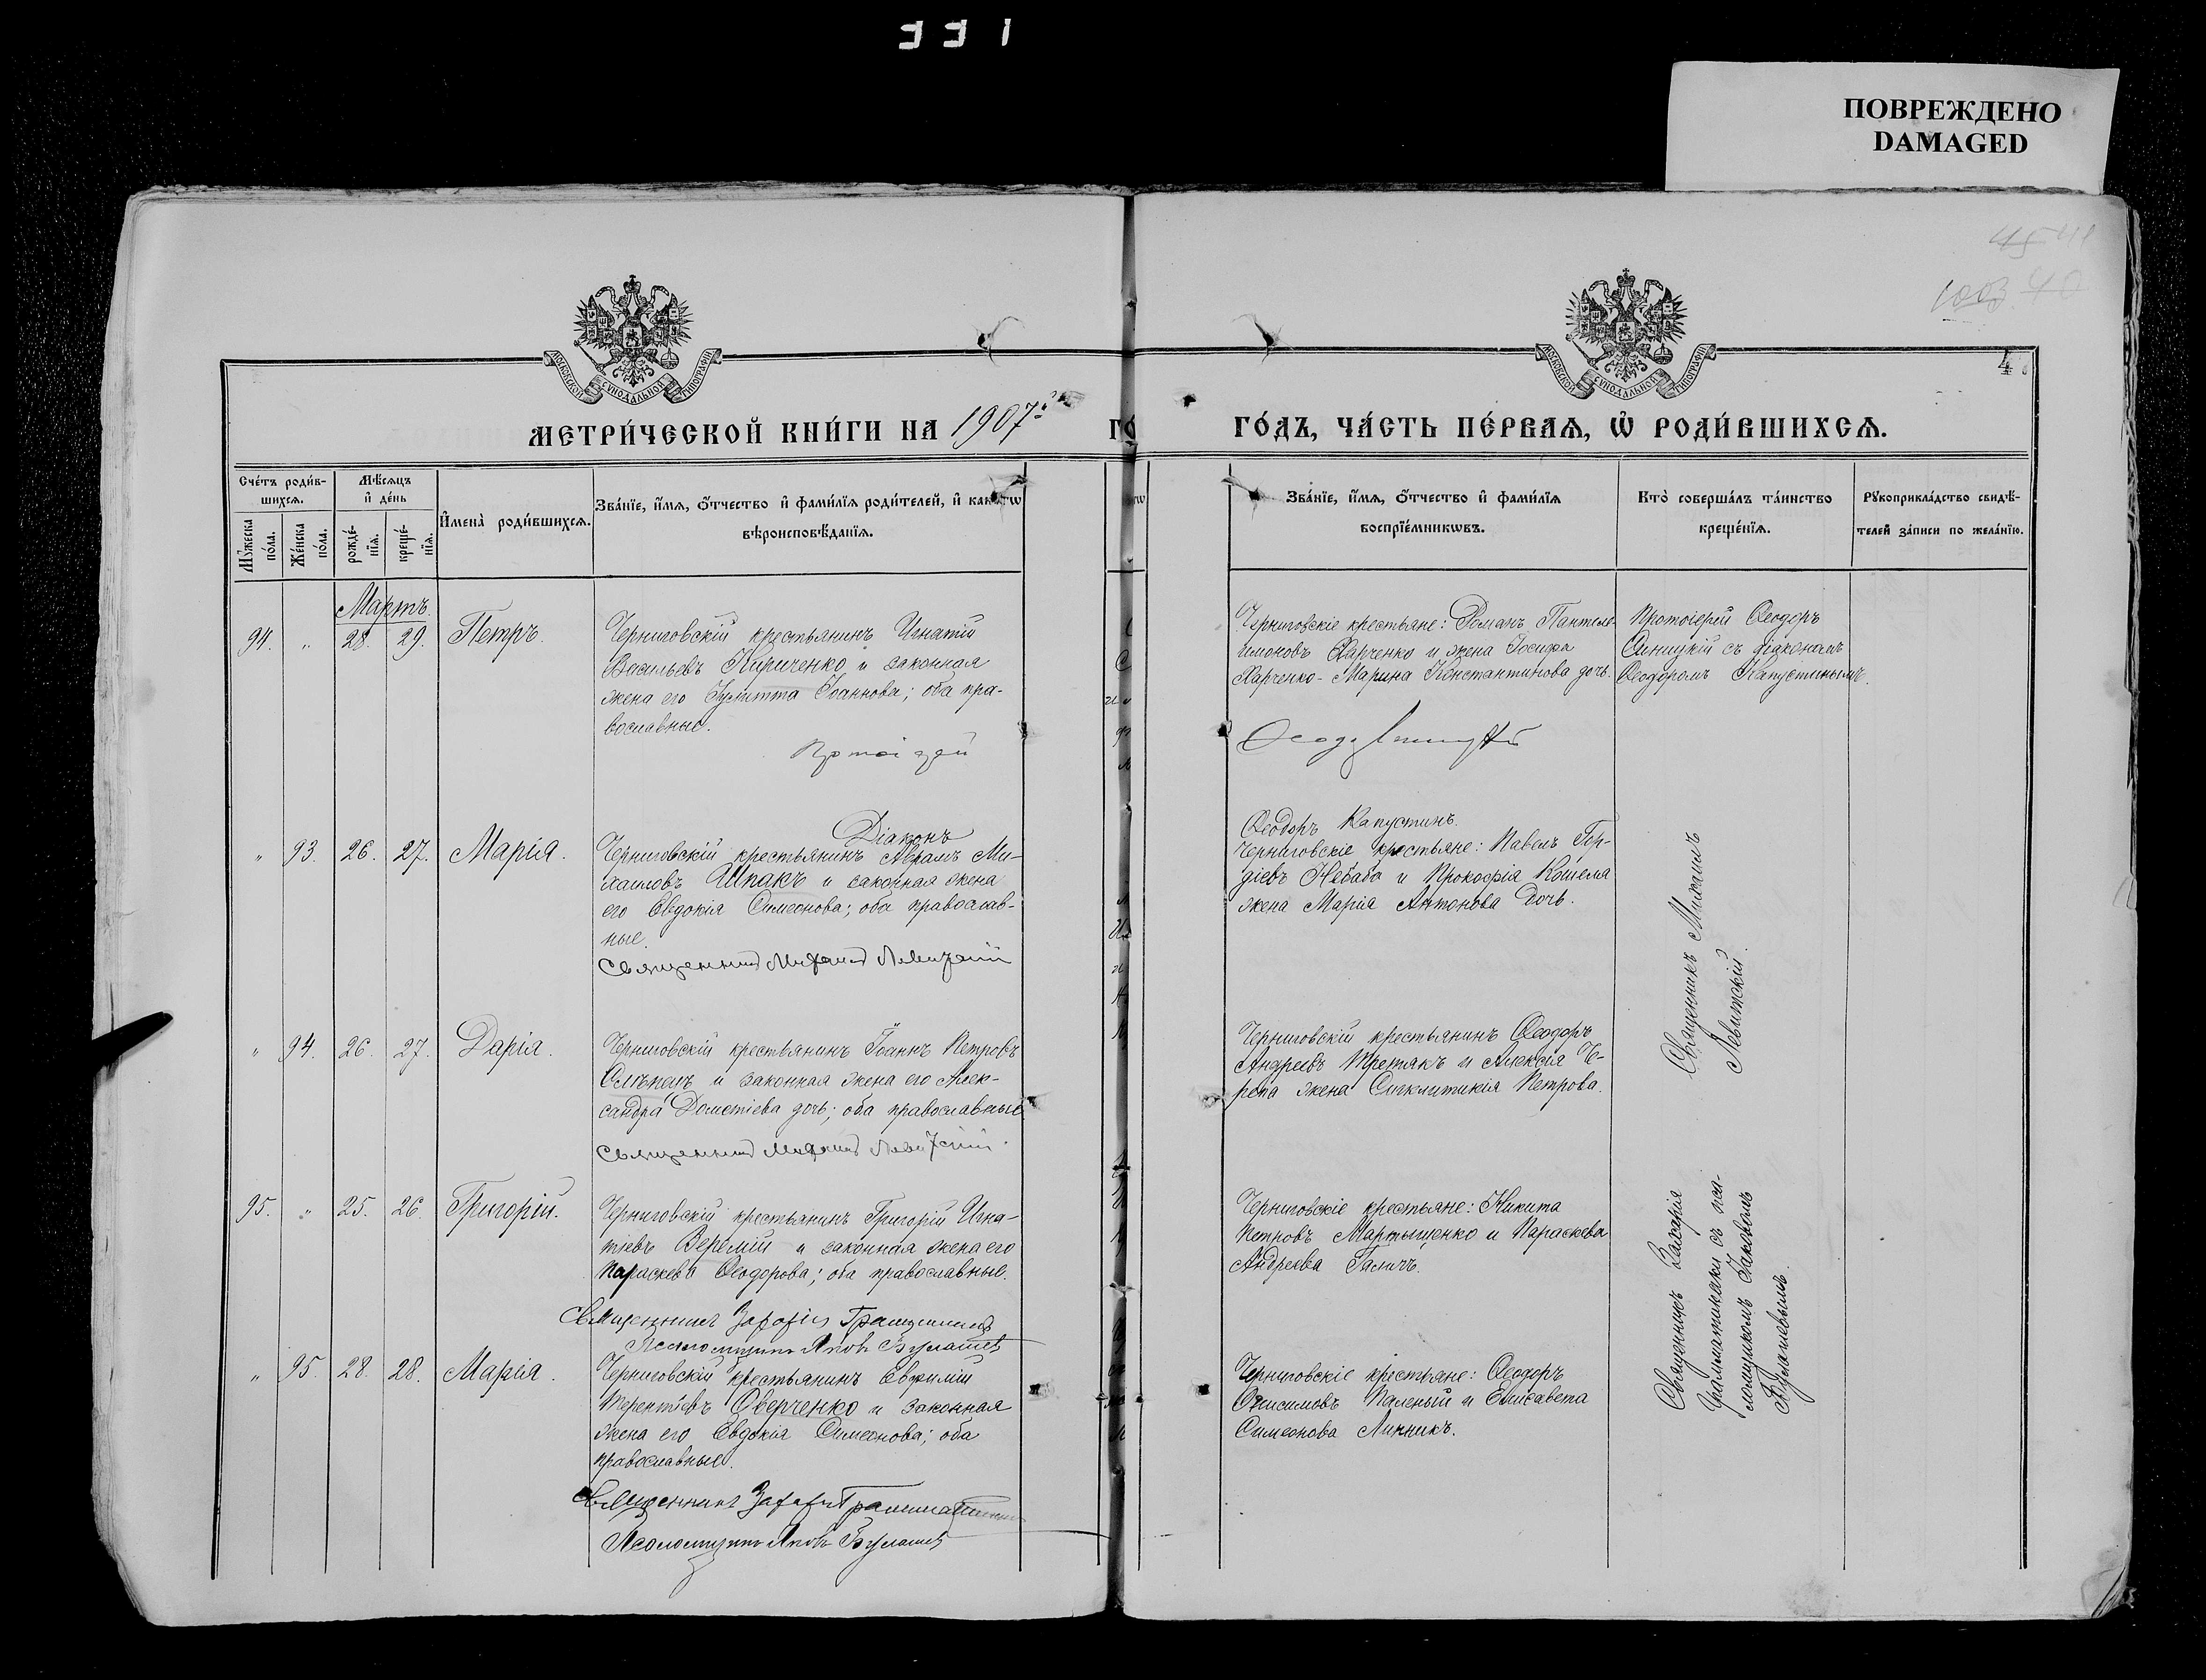 331
ПОВРЕЖДЕНО
DAMAGED
45 41
1003 40
МОСКОВСКОЙ СѴНОДАЛЬНОЙ ТИПОГРАФІИ
МОСКОВСКОЙ СѴНОДАЛЬНОЙ ТИПОГРАФІИ
4
МЕТРИ́ЧЕСКОЙ КНИ́ГИ НА 1907й
ГО
ГО́ДЪ, ЧА́СТЬ ПЕ́РВАѦ, Ѡ҆ РОДИ́ВШИХСѦ.
Сче́тъ роди́в-
шихсѧ.
Мꙋ́жеска по́ла.
Же́нска по́ла.
Мѣ́сѧцъ
и҆ де́нь
рожде́-
нїѧ.
креще́-
нїѧ.
И҆мена̀ роди́вшихсѧ.
Зва́нїе, и҆́мѧ, ѻ҆́тчество и҆ фами́лїѧ роди́телей, и҆ како́гѡ
вѣроисповѣ́данїѧ.
Зва́нїе, и҆́мѧ, ѻ҆́тчество и҆ фами́лїѧ
воспрїе́мникѡвъ.
Кто̀ соверша́лъ та́инство
креще́нїѧ.
Рꙋкоприкла́дство свидѣ́-
телей за́писи по жела́нїю.
Мартъ.
94. " 28. 29. Петръ.
Черниговскій крестьянинъ Игнатій
Васильевъ Кириченко и законная
жена его Іулитта Іоаннова; оба пра-
вославные.
Протоіерей
Черниговскіе крестьяне: Романъ Пантеле-
имоновъ Харченко и жена Іосифа
Харченко - Марина Константинова дочь.
Протоіерей Ѳеодоръ
Синицкій съ діакономъ
Ѳеодоромъ Капустинымъ.
Діаконъ
Ѳеодоръ Капустинъ.
" 93. 26. 27. Марія.
Черниговскій крестьянинъ Аврамъ Ми-
хаиловъ Шпакъ и законная жена
его Евдокія Симеонова; оба православ-
ные.
Священникъ Михаилъ Левитскій
Черниговскіе крестьяне: Павелъ Гор-
діевъ Небаба и Прокофія Кошеля
жена Марія Антонова дочь.
Священникъ Михаилъ
Левитскій.
" 94. 26. 27. Дарія.
Черниговскій крестьянинъ Іоаннъ Петровъ
Слѣпецъ и законная жена его Алек-
сандра Дометіева дочь; оба православные
Священникъ Михаилъ Левитскій.
Черниговскій крестьянинъ Ѳеодоръ
Андреевъ Третякъ и Алексія Че-
репа жена Сигклитикія Петрова.
95. " 25. 26. Григорій.
Черниговскій крестьянинъ Григорій Игна-
тіевъ Веремій и законная жена его
Параскева Ѳеодорова; оба православные.
Священникъ Захарія Грамматикати
Псаломщикъ Яковъ Булашевъ
Черниговскіе крестьяне: Никита
Петровъ Мартыщенко и Параскева
Андреева Галичъ.
Священникъ Захарія
Грамматикати съ пса-
ломщикомъ Іаковомъ
Булашевымъ.
" 95. 28. 28. Марія.
Черниговскій крестьянинъ Евфимій
Терентіевъ Оверченко и законная
жена его Евдокія Симеонова; оба
православные.
Священникъ Захарія Грамматикати
Псаломщикъ Яковъ Булашевъ
Черниговскіе крестьяне: Ѳеодоръ
Онисимовъ Паленый и Елисавета
Симеонова Линникъ.